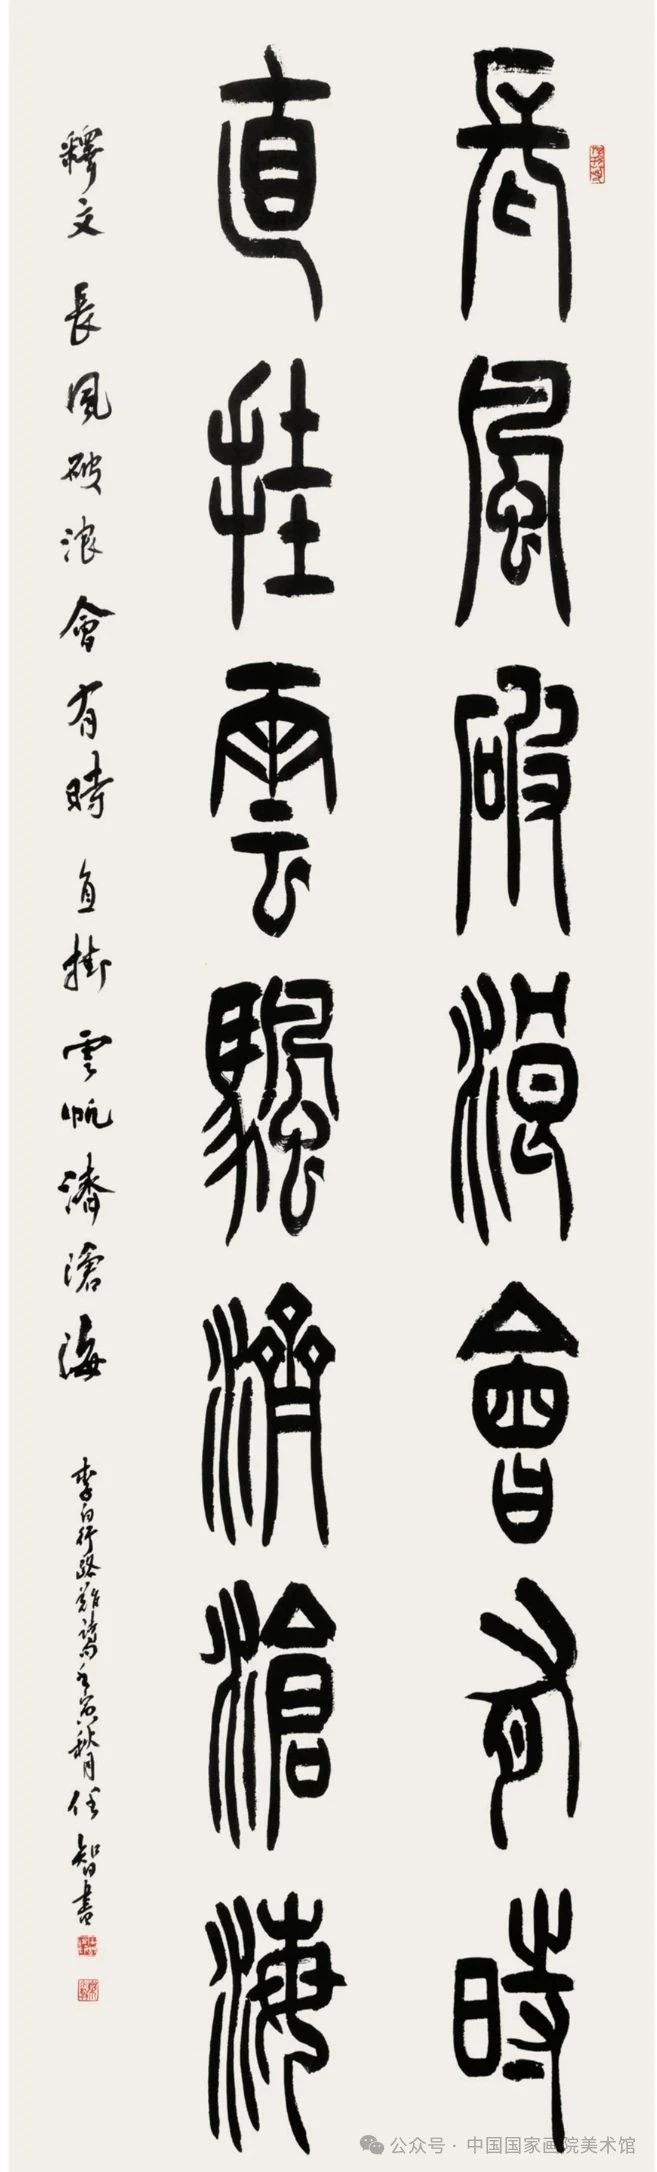 長風破浪會有時
直挂雲颿濟滄海
釋文 長風破浪會有時直掛雲帆濟滄海 李白行路難詩句壬寅秋月任智書
公众号·中国国家画院美术馆